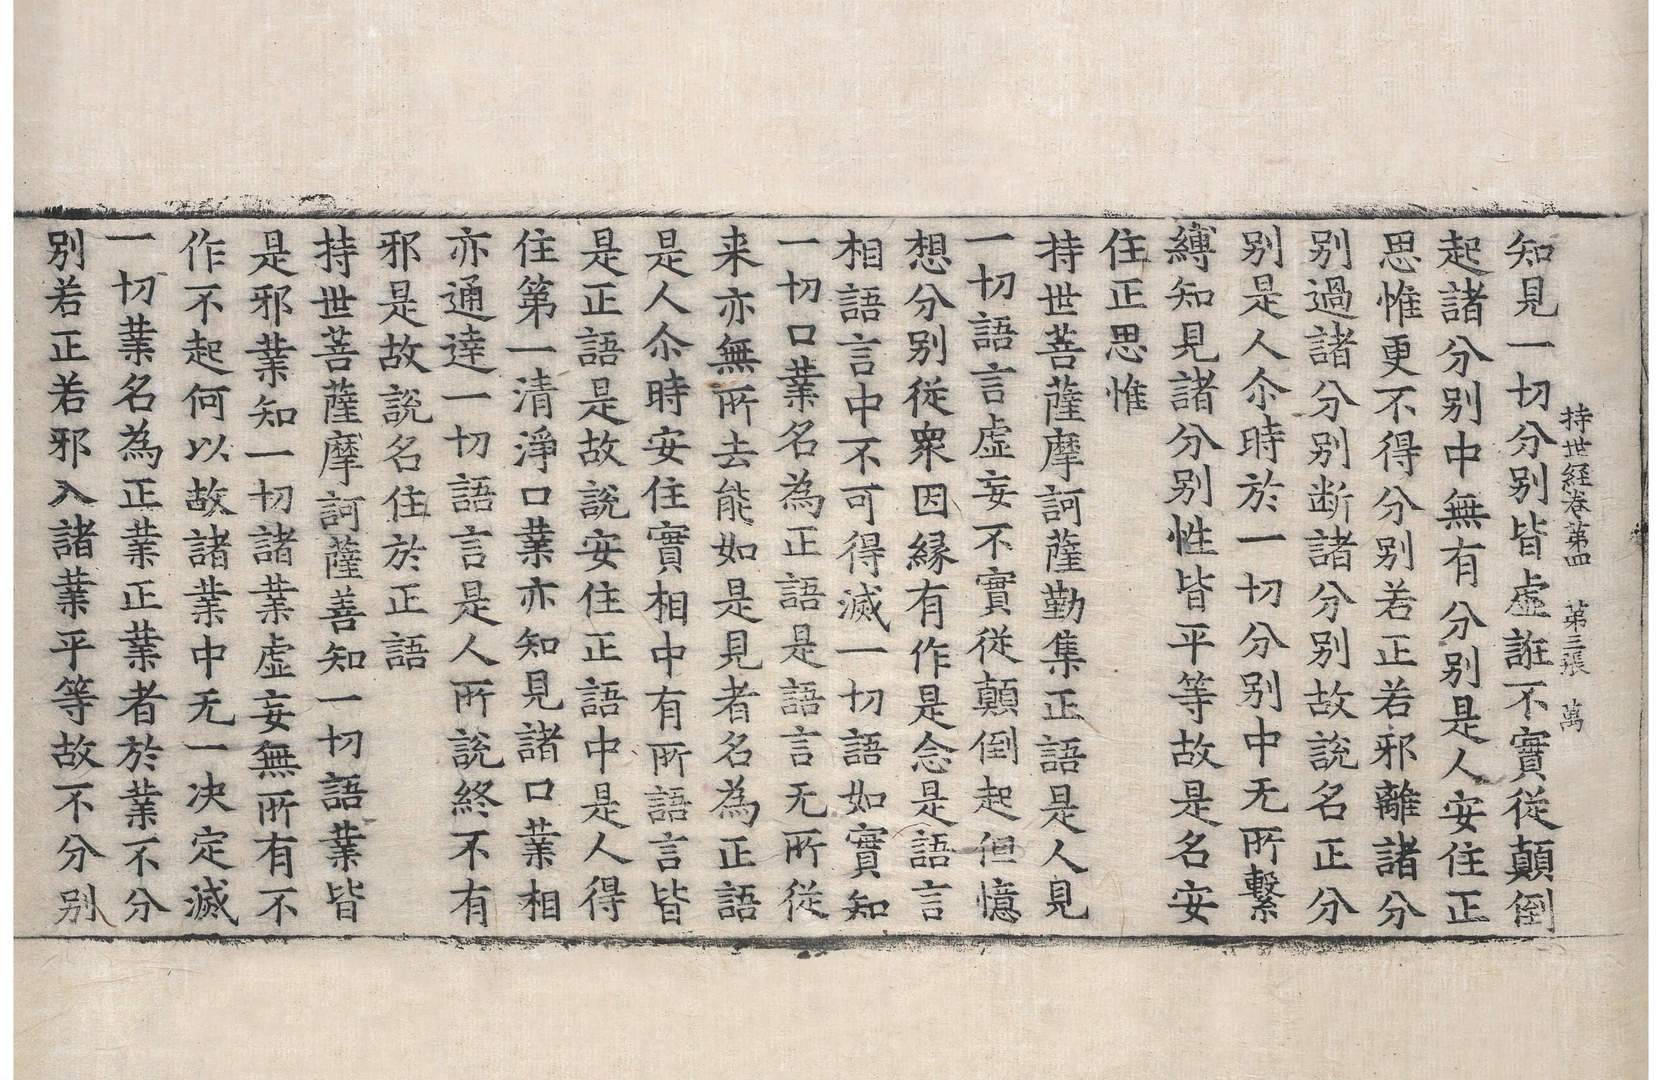 持世経卷第四　第三張　萬
知見一切分別皆虛誑不實従顛倒
起諸分別中無有分別是人安住正
思惟更不得分別若正若邪離諸分
別過諸分別断諸分別故說名正分
別是人尒時於一切分別中无所繫
縛知見諸分別性皆平等故是名安
住正思惟
持世菩薩摩訶薩勤集正語是人見
一切語言虛妄不實従顛倒起但憶
想分別従衆因縁有作是念是語言
相語言中不可得滅一切語如實知
一切口業名為正語是語言无所従
来亦無所去能如是見者名為正語
是人尒時安住實相中有所語言皆
是正語是故說安住正語中是人得
住第一清淨口業亦知見諸口業相
亦通達一切語言是人所說終不有
邪是故說名住於正語
持世菩薩摩訶薩善知一切語業皆
是邪業知一切諸業虛妄無所有不
作不起何以故諸業中无一决定滅
一切業名為正業正業者於業不分
別若正若邪入諸業平等故不分別